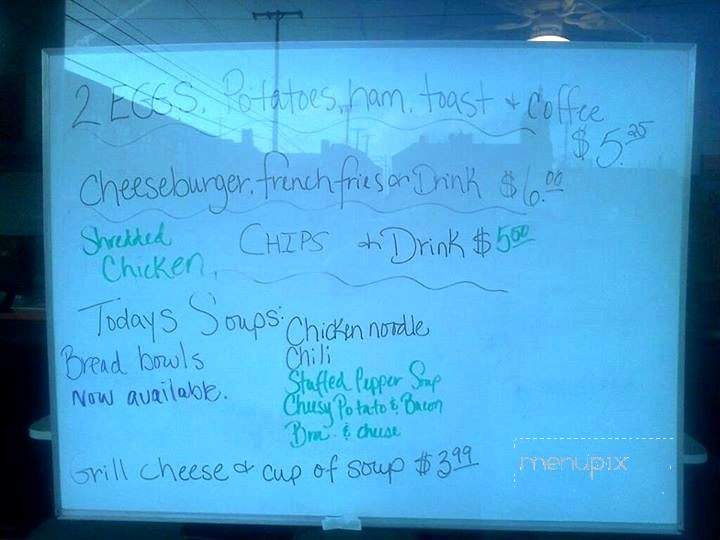 2 EGGS, Potatoes, ham, toast & Coffee
$5.25
Cheeseburger, french fries or Drink $6.00
Shredded
Chicken, CHIPS & Drink $5.00
Todays Soups:
Chicken noodle
Chili
Stuffed Pepper Soup
Cheesy Potato & Bacon
& cheese
Bread bowls
Now available.
Grill cheese & cup of soup $3.99
menupix